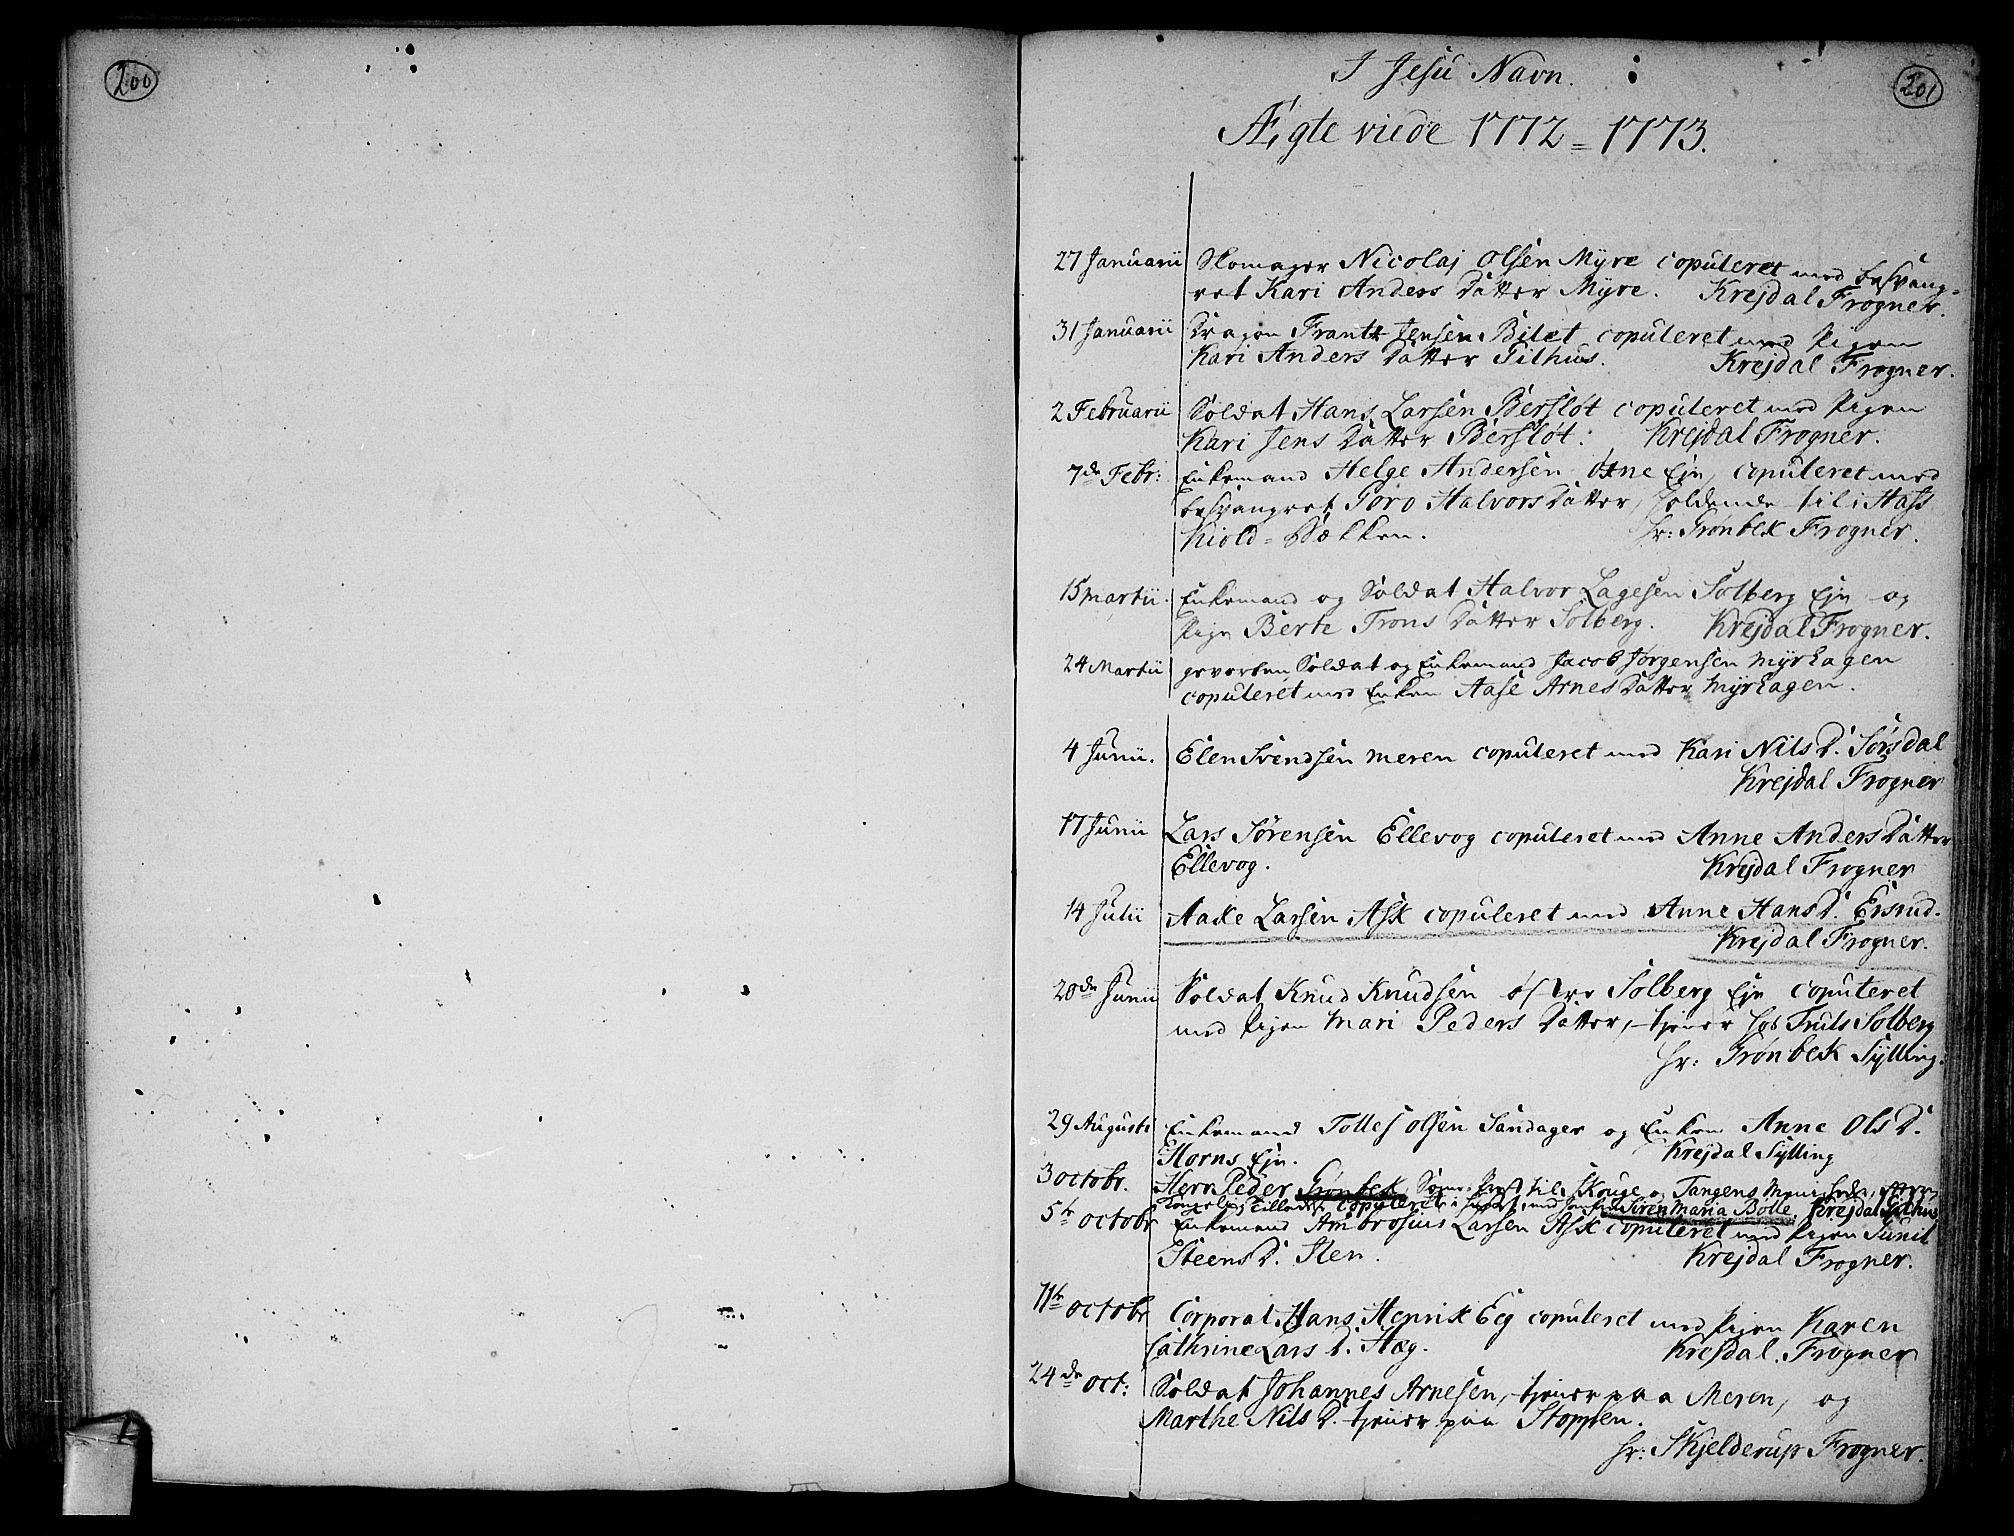 200
201
I Jesu Navn.
Ægte viede 1772 = 1773.
27 Januarii Skomager Nicolaj Olsen Myre copuleret med besvang=
ret Kari Anders Datter Myre. Krejdal Frogner.
31 Januarii Dragon Frantz Jensen Bilet copuleret med Pigen
Kari Anders Datter Gilhus. Krejdal Frogner.
2 Februarii Soldat Hans Larsen Bersløt copuleret med Pigen
Kari Jens Datter Bersløt. Krejdal Frogner.
7de Febr: Enkemand Helge Andersen Eje, copuleret med
besvangret Goro Halvors Datter, holdende til i Hass
kiold = Bækken. Hr: Grønbek Frogner.
15 Martii. Enkemand og Soldat Halvor Lagesen Solberg Eje og
Pige Berte Trons Datter Solberg. Krejdal Frogner.
24 Martii gevorben Soldat og Enkemand Jacob Jørgensen Myrhagen
copuleret med Enken Aase Arnes Datter Myrhagen.
4 Junii. Elen Svendsen Meren copuleret med Kari Nils D. Sørsdal
Krejdal Frogner
17 Junii Lars Sørensen Ellevog copuleret med Anne Anders Datter
Ellevog. Krejdal Frogner
14 Julii Aake Larsen Ask copuleret med Anne Hans D. Ersrud.
Krejdal Frogner.
20de Junii Soldat Knud Knudsen østre Solberg Eje copuleret
med Pigen Mari Peders Datter, tjener hos Truls Solberg
Hr: Grønbek Sylling.
29 Augusti Enkemand Tolles Olsen Sandager og Enken Anne Ols D.
Horns Eje. Krejdal Sylling
3 Octobr. Herr Peder Grønbek, Sogne-Præst til Skouge og Tangens
Kongelig Tilladelse copuleret i Huset med Jomfru Siren Maria Bolle. Krejdal Gilhus
5te Octobr Enkemand Ambrosius Larsen Ask copuleret med Pigen Sunil
Steens D. Sten. Krejdal Frogner.
11te Octobr Corporal Hans Henrik Eeg copuleret med Pigen Karen
Cathrine Lars D. Hæg. Krejdal. Frogner
24de Oct: Soldat Johannes Arnesen, tjener paa Meren, og
Marthe Nils D. tjener paa Stoppen.
Hr: Skjelderup Frogner.